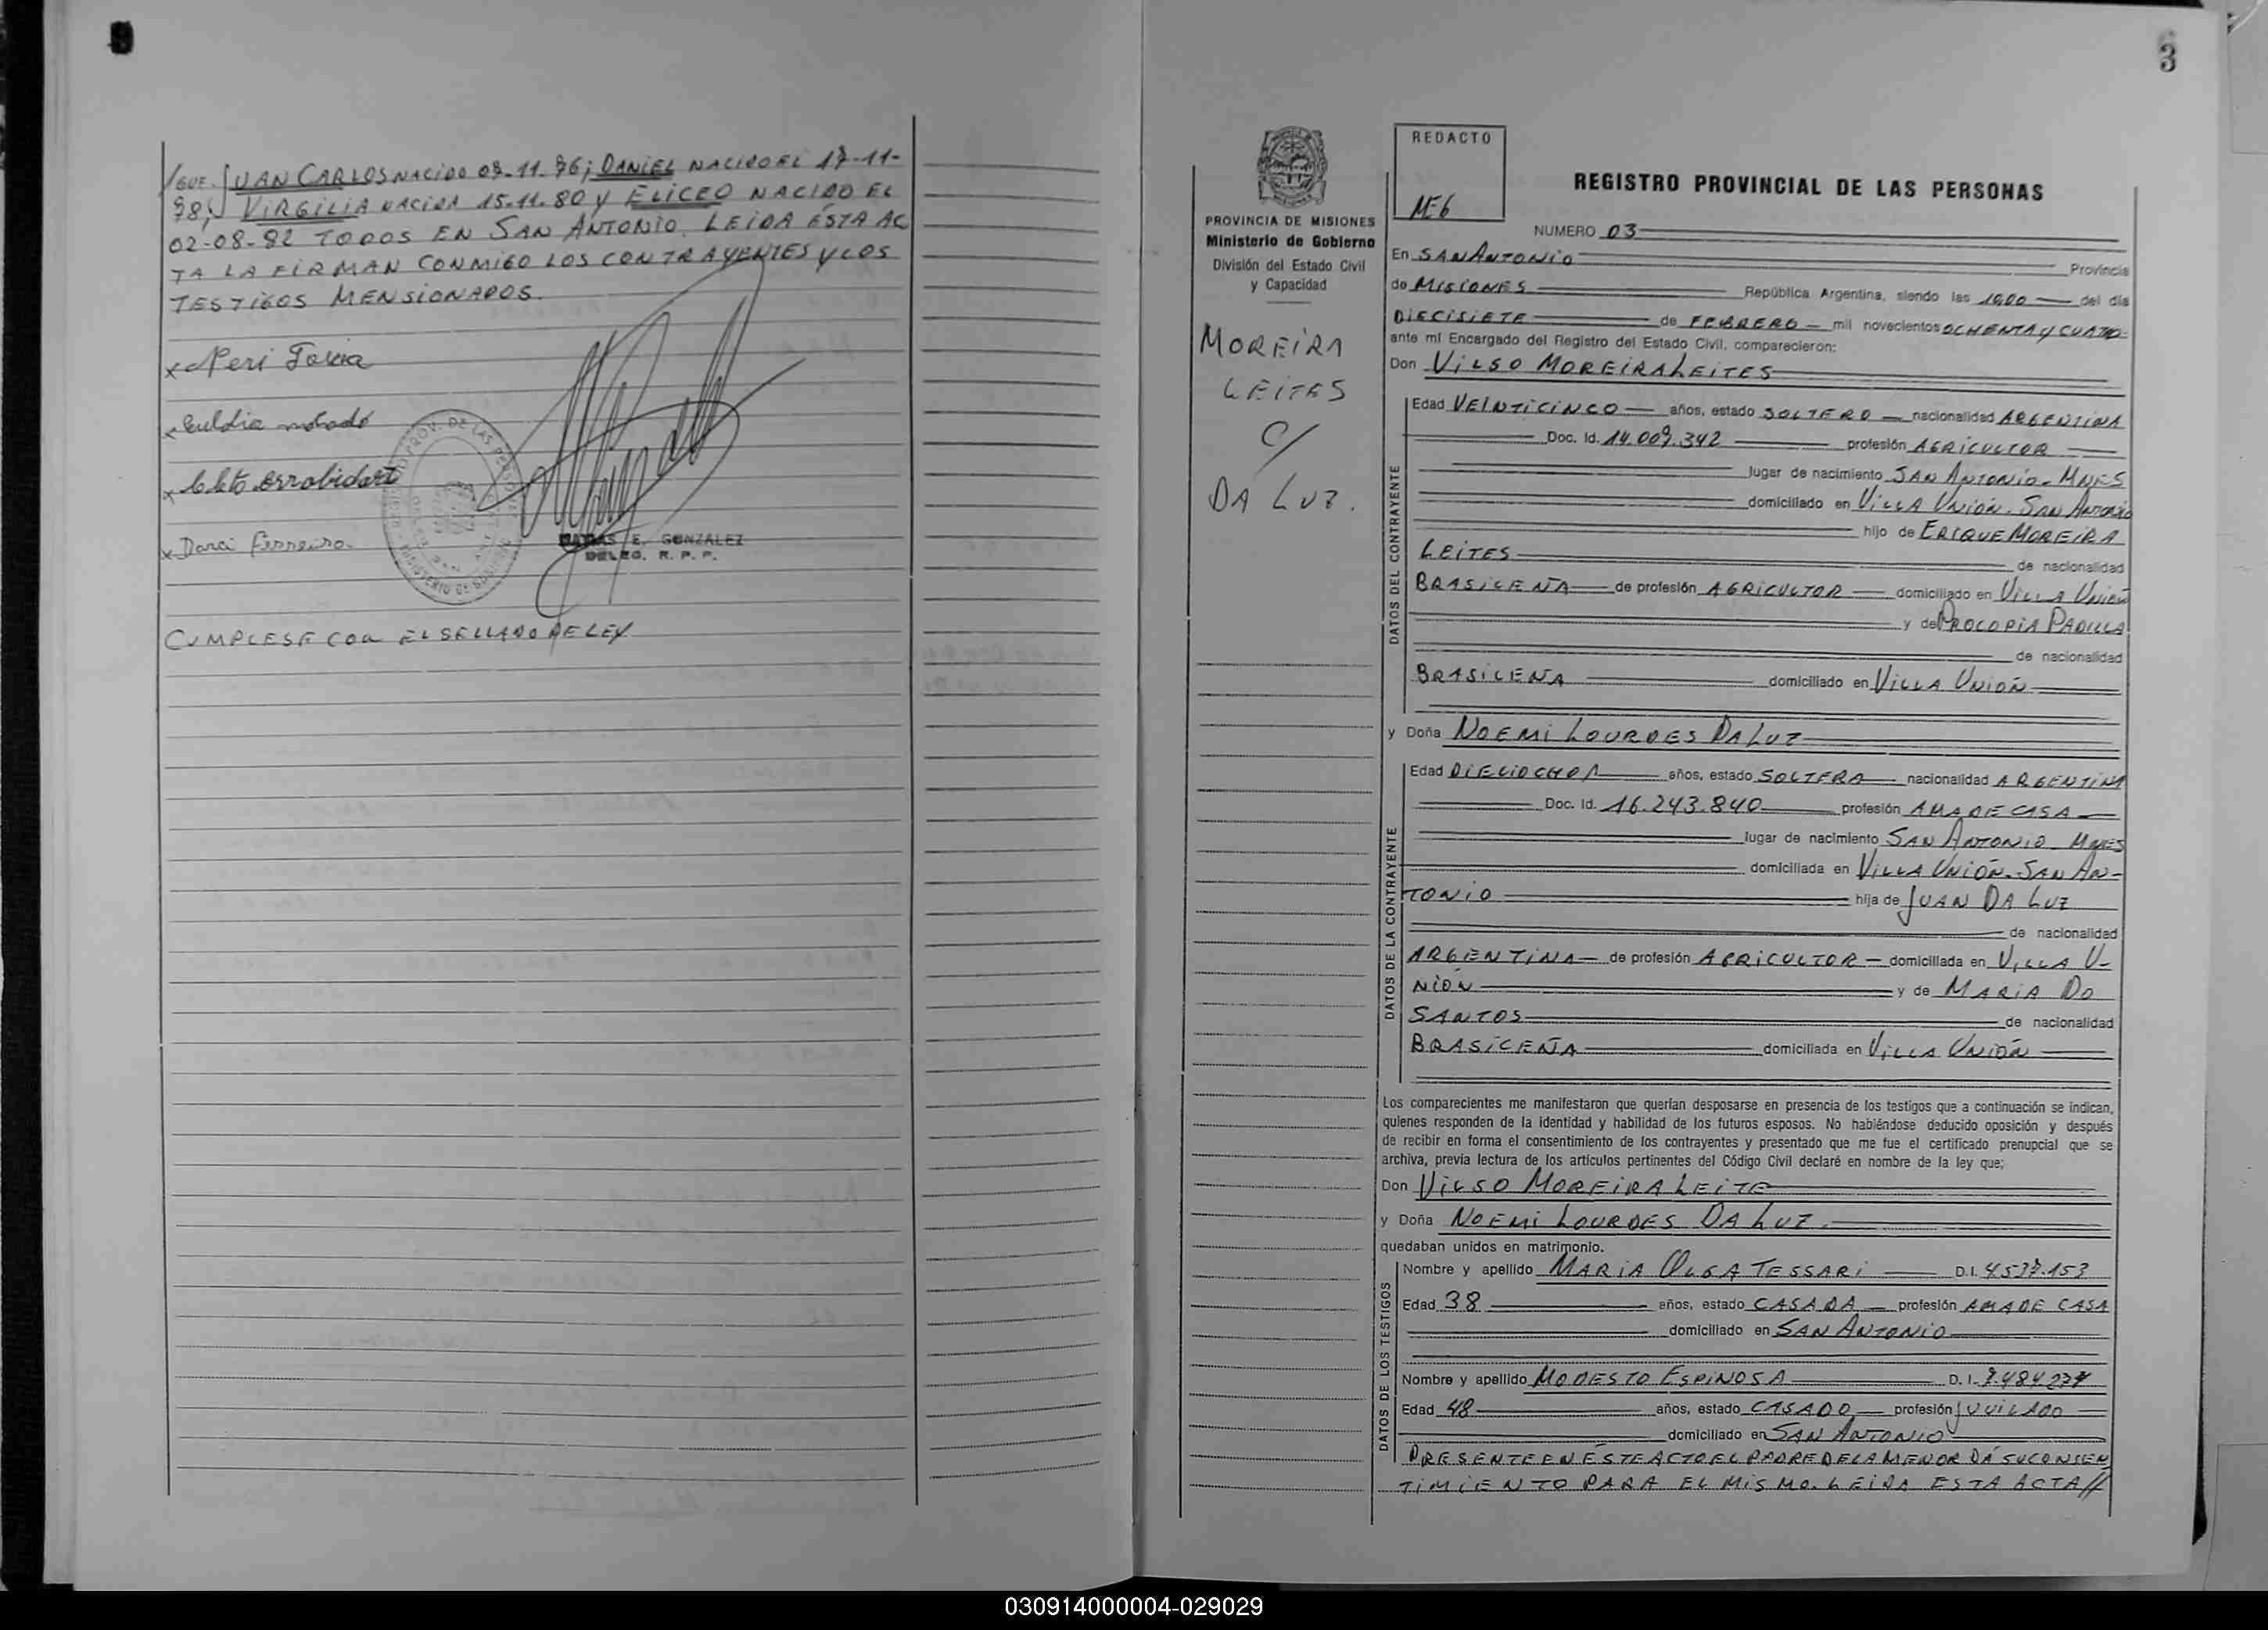 /GUE. JUAN CARLOS NACIDO 09-11-76; DANIEL NACIDO EL 17-11-
78; VIRGILIA NACIDA 15.11.80 Y ELICEO NACIDO EL
02-08-82 TODOS EN SAN ANTONIO. LEIDA ÉSTA AC
TA LA FIRMAN CONMIGO LOS CONTRAYENTES Y LOS
TESTIGOS MENSIONADOS.
x Neri
x
x
x Darci Ferreira
MATIAS E. GONZALEZ
DELEG. R. P. P.
CUMPLESE CON EL SELLADO DE LEY
3
PROVINCIA DE MISIONES
Ministerio de Gobierno
División del Estado Civil
y Capacidad
MOREIRA
LEITES
C/
DA LUZ.
REDACTO
ME6
REGISTRO PROVINCIAL DE LAS PERSONAS
NUMERO 03
En SAN ANTONIO Provincia
de MISIONES República Argentina, siendo las 1900 del día
DIECISIETE de FEBRERO mil novecientos OCHENTA Y CUATRO
ante mí Encargado del Registro del Estado Civil, comparecieron:
Don VILSO MOREIRA LEITES
DATOS DEL CONTRAYENTE
Edad VEINTICINCO años, estado SOLTERO nacionalidad ARGENTINA
Doc. Id. 14.009.342 profesión AGRICULTOR
lugar de nacimiento SAN ANTONIO-MNES
domiciliado en VILLA UNIÓN-SAN ANTONIO
hijo de ERIQUE MOREIRA
LEITES de nacionalidad
BRASILEÑA de profesión AGRICULTOR domiciliado en VILLA UNIÓN
y de PROCOPIA PADILLA
de nacionalidad
BRASILEÑA domiciliado en VILLA UNIÓN
y Doña NOEMI LOURDES DA LUZ
DATOS DE LA CONTRAYENTE
Edad DIECIOCHO años, estado SOLTERA nacionalidad ARGENTINA
Doc. Id. 16.243.840 profesión AMA DE CASA
lugar de nacimiento SAN ANTONIO-MNES
domiciliada en VILLA UNIÓN-SAN AN-
TONIO hija de JUAN DA LUZ
de nacionalidad
ARGENTINA de profesión AGRICULTOR domiciliada en VILLA U-
NIÓN y de MARIA DO
SANTOS de nacionalidad
BRASILEÑA domiciliada en VILLA UNIÓN
Los comparecientes me manifestaron que querían desposarse en presencia de los testigos que a continuación se indican,
quienes responden de la identidad y habilidad de los futuros esposos. No habiéndose deducido oposición y después
de recibir en forma el consentimiento de los contrayentes y presentado que me fue el certificado prenupcial que se
archiva, previa lectura de los artículos pertinentes del Código Civil declaré en nombre de la ley que;
Don VILSO MOREIRA LEITE
y Doña NOEMI LOURDES DA LUZ.
quedaban unidos en matrimonio.
DATOS DE LOS TESTIGOS
Nombre y apellido MARIA OLGA TESSARI D.I. 4.537.153
Edad 38 años, estado CASADA profesión AMA DE CASA
domiciliado en SAN ANTONIO
Nombre y apellido MODESTO ESPINOSA D.I. 7.484.277
Edad 48 años, estado CASADO profesión JUVILADO
domiciliado en SAN ANTONIO
PRESENTE EN ÉSTE ACTO EL PADRE DE LA MENOR DÁ SU CONSEN
TIMIENTO PARA EL MISMO. LEIDA ESTA ACTA//
030914000004-029029